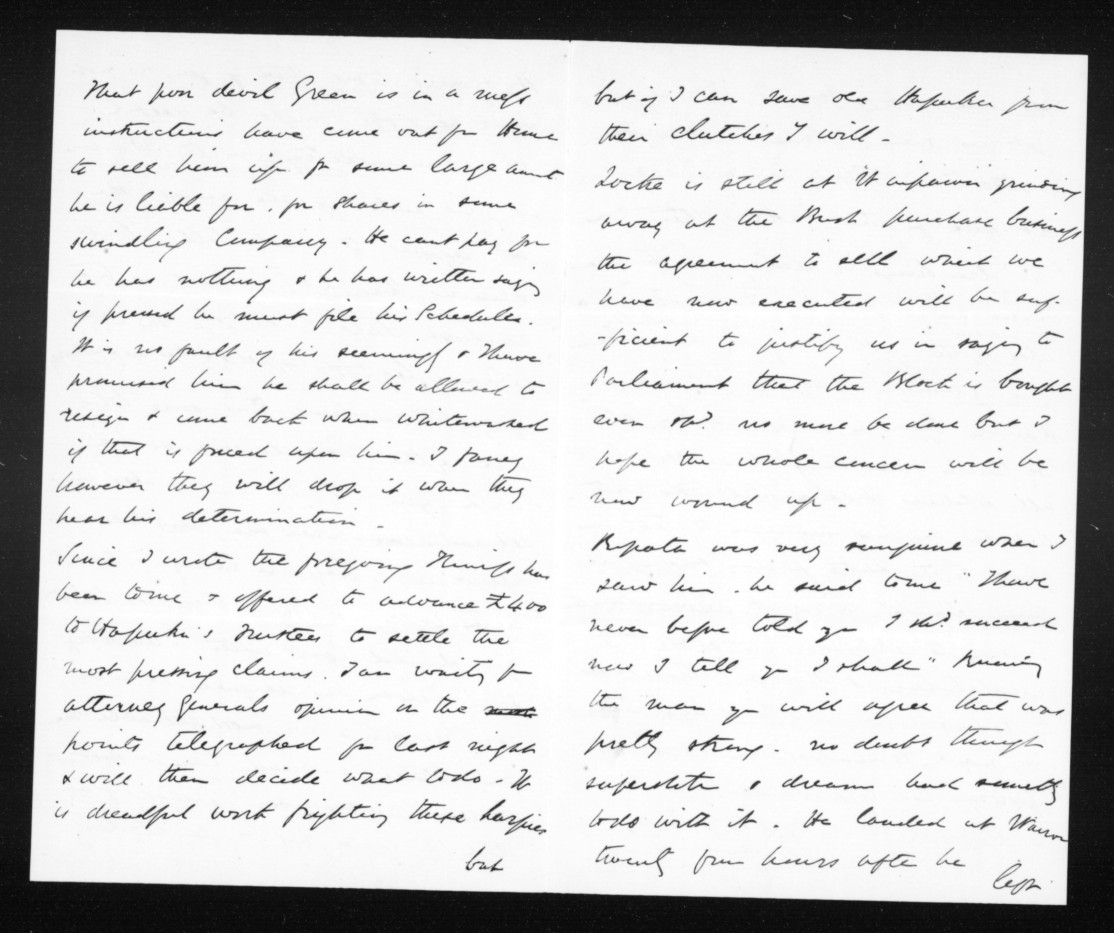 That poor devil Green is in a mess
instructions have come out fr Home
to sell him up for some large amt
he is liable for. for shares in some
swindling Company. He cant pay for
he has nothing & he has written saying
if pressed he must file his Schedules.
It is no fault of his seemingly & I have
promised him he shall be allowed to
resign & come back when whitewashed
if that is forced upon him. I fancy
however they will drop it when they
hear his determination -
Since I wrote the foregoing has
been to me & offered to advance £400
to Hapuku's Trustees to settle the
most pressing claims. I am waiting for
attorney Generals opinion on the
points telegraphed for last night
& will then decide what to do - It
is dreadful work fighting these harpies
but
but if I can save old Hapuku from
their clutches I will -
Locke is still at Waipawa grinding
away at the Bush purchase business
the agreement to sell which we
have now executed will be suf-
-ficient to justify us in saying to
Parliament that the Block is bought
even shd. no more be done but I
hope the whole concern will be
now wound up -
Ropata was very sanguine when I
saw him. he said to me "I have
never before told you I shd. succeed
now I tell you I shall" Knowing
the man you will agree that was
pretty strong. no doubt though
superstitn & dreams had something
to do with it. He landed at Wairoa
twenty four hours after he
left